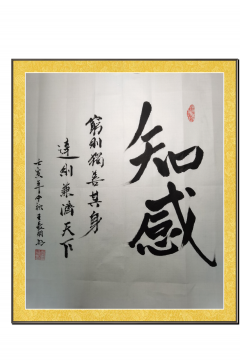 知感
窮則獨善其身
達則兼濟天下